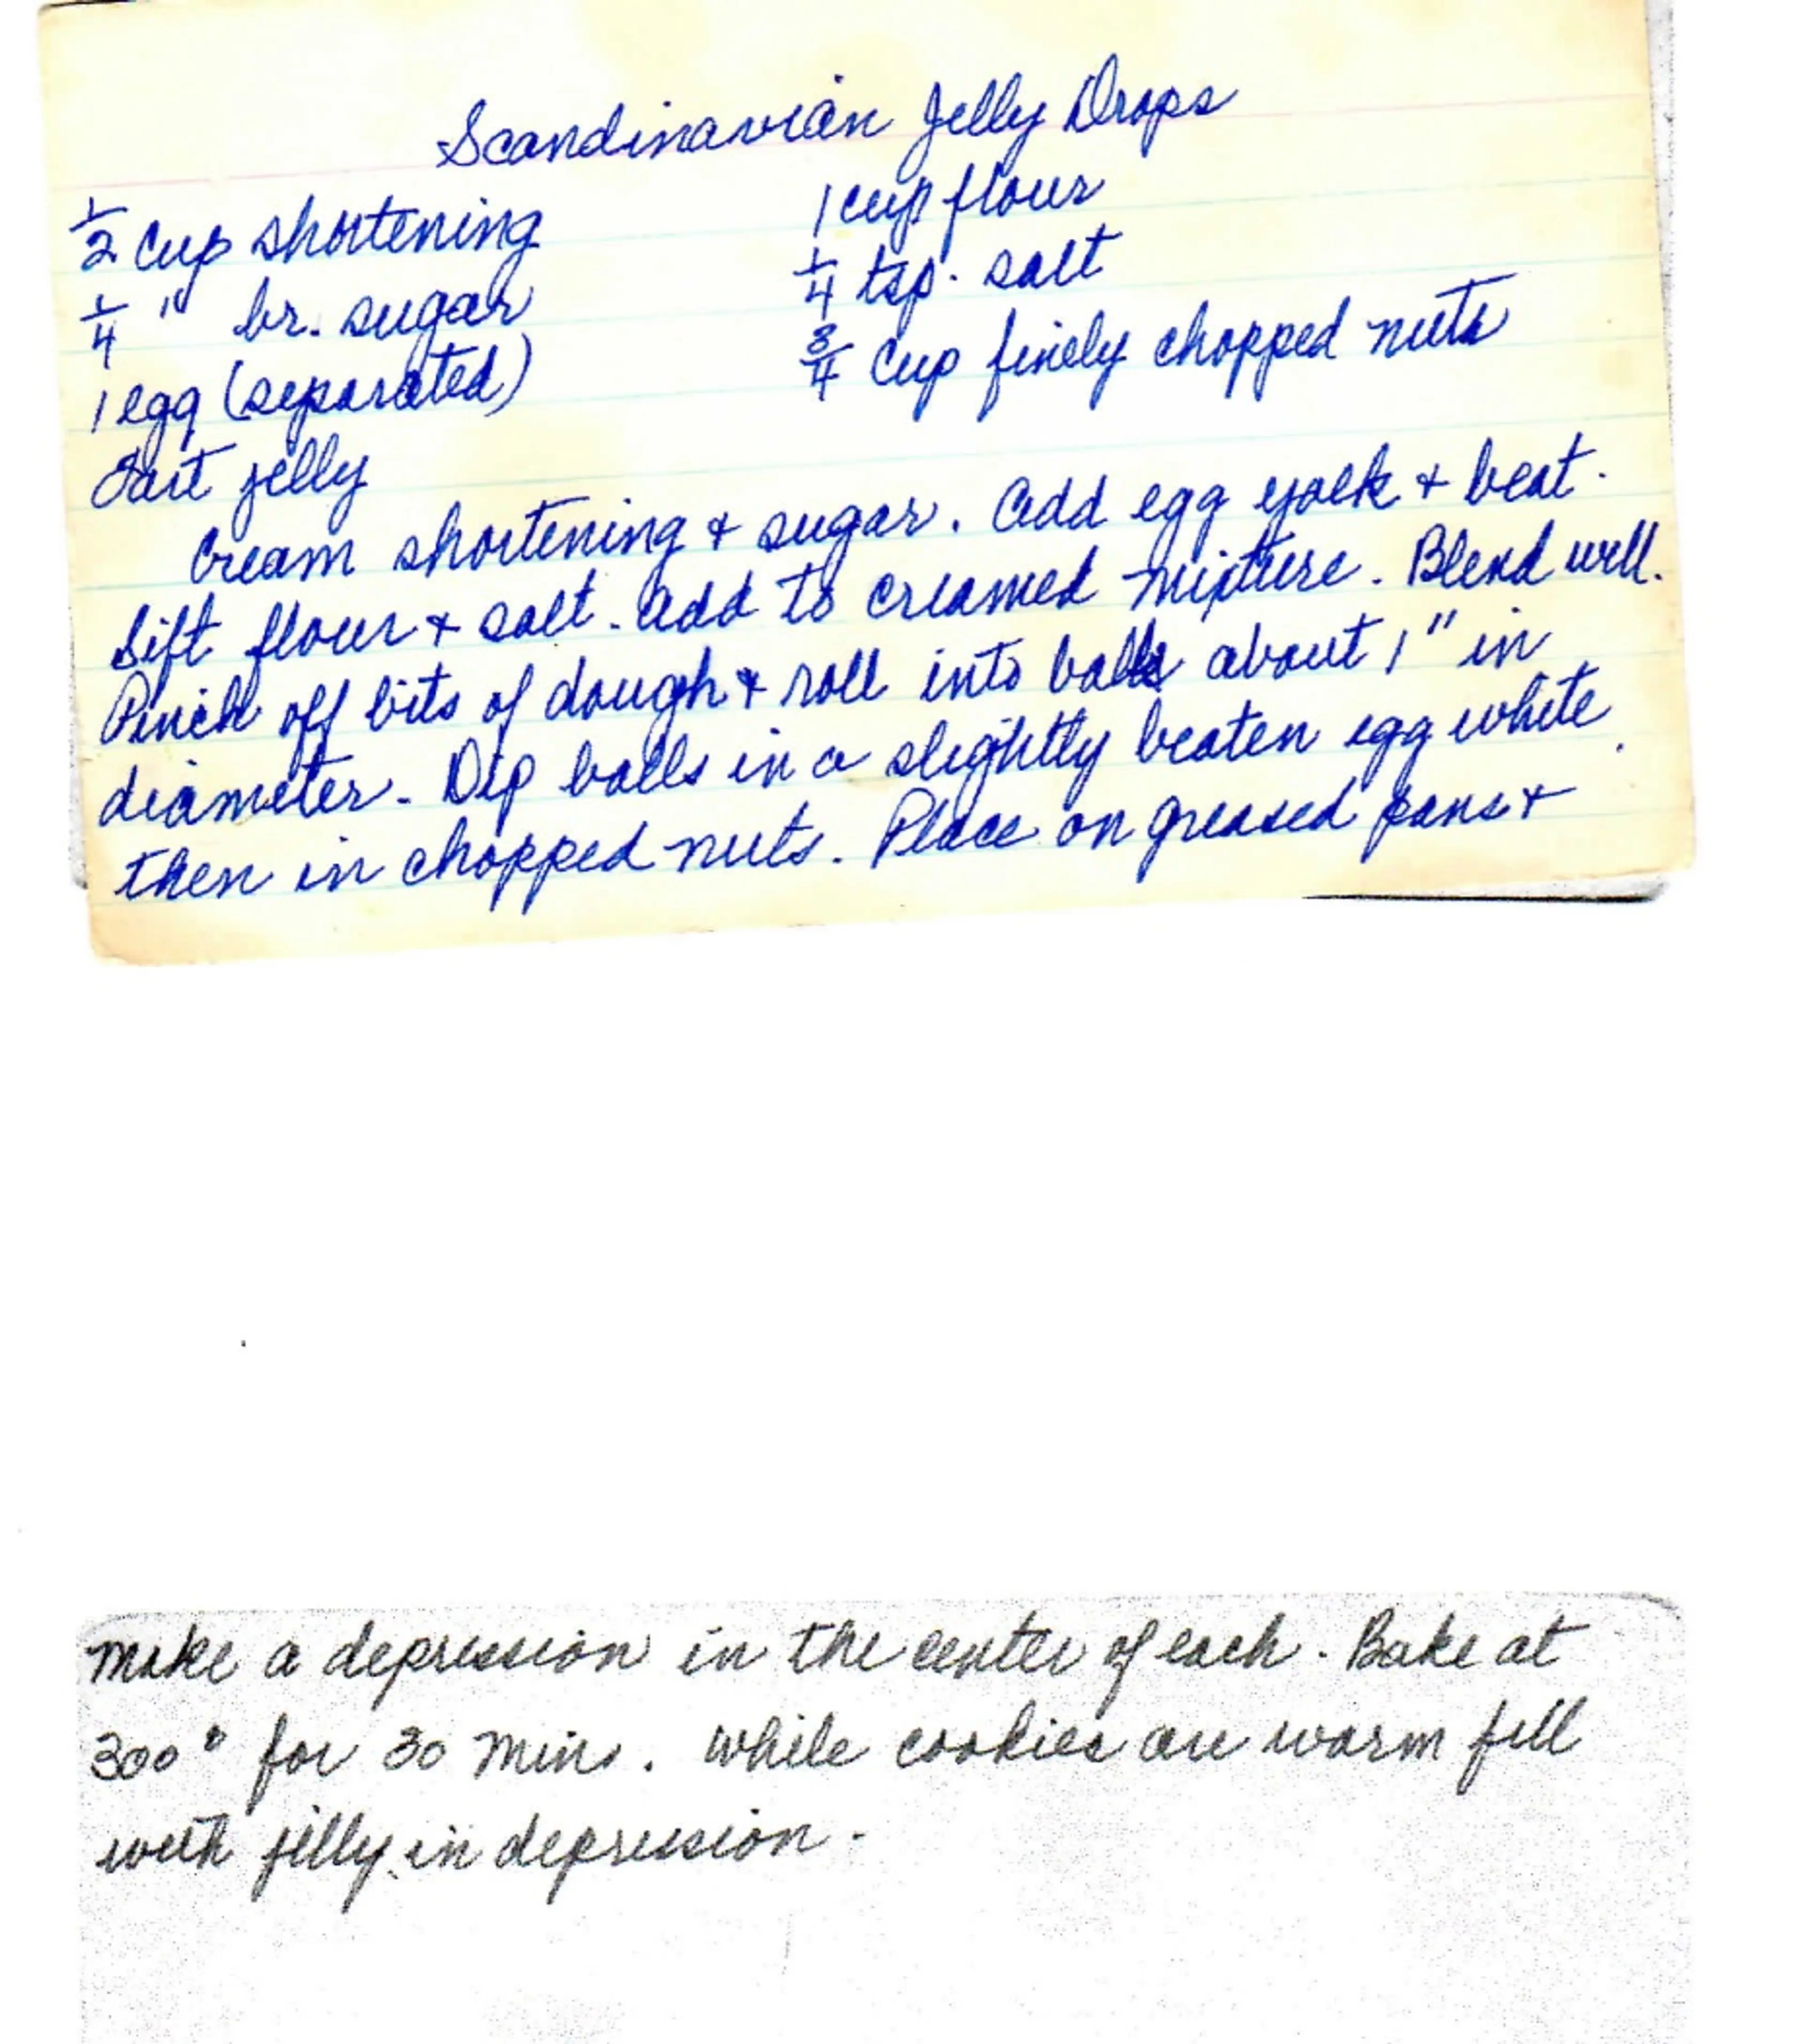 Scandinavian Jelly Drops
1/2 cup shortening
1/4 " br. sugar
1 egg (separated)
Tart jelly
1 cup flour
1/4 tsp. salt
3/4 cup finely chopped nuts
Cream shortening & sugar. Add egg yolk & beat.
Sift flour & salt. Add to creamed mixture. Blend well.
Pinch off bits of dough & roll into balls about 1" in
diameter. Dip balls in a slightly beaten egg white
then in chopped nuts. Place on greased pans &
make a depression in the center of each. Bake at
300° for 30 mins. While cookies are warm fill
with jelly in depression.